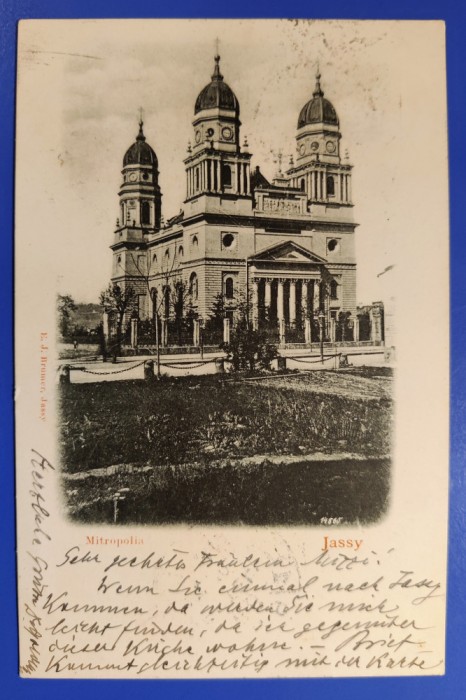 Mitropolia
Jassy
14865
E. J. Brunner, Jassy
Sehr geehrtes Fräulein Mizzi!
Wenn Sie einmal nach Jassy
kommen, da werden Sie mich
leicht finden, da ich gegenüber
dieser Kirche wohne. – Brief
kommt gleichzeitig mit der Karte
Herzliche Grüsse